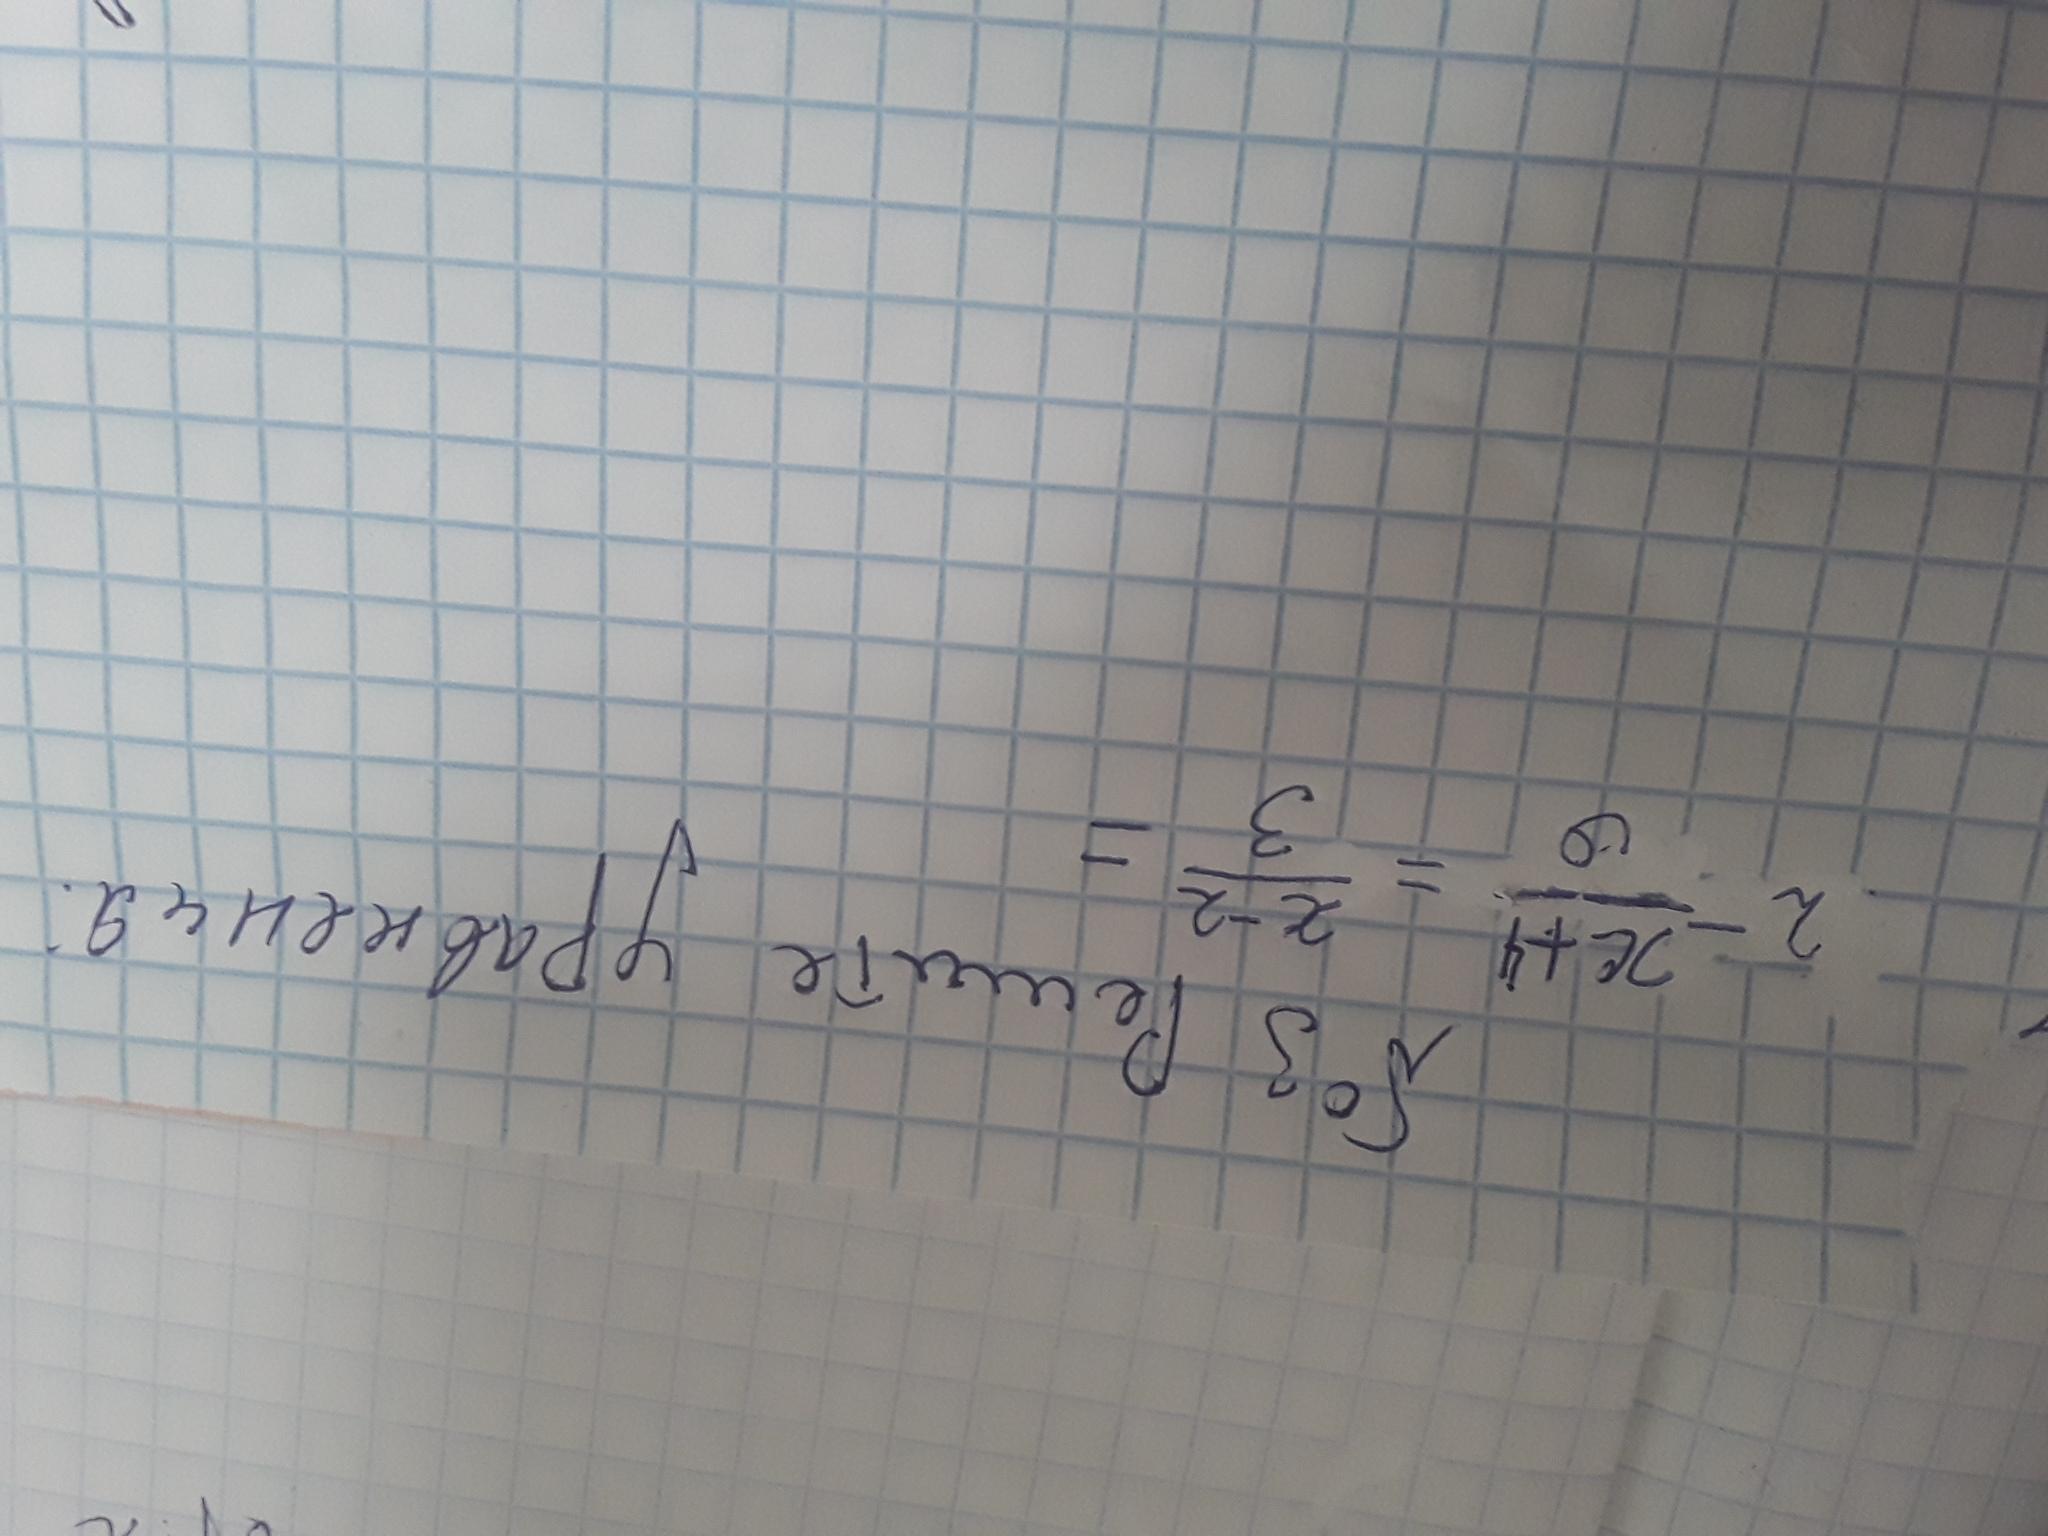 №3 Решите уравнения.
2 - x+4/6 = x-2/3 =